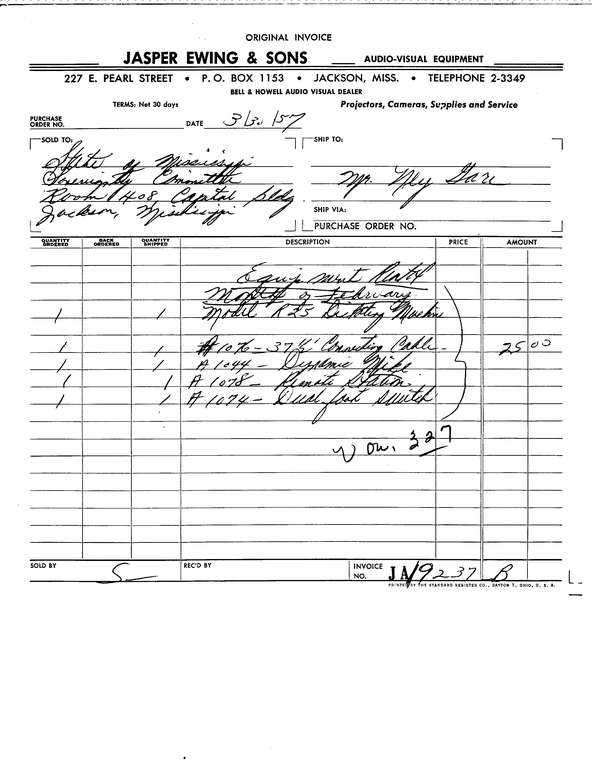 ORIGINAL INVOICE
JASPER EWING & SONS AUDIO-VISUAL EQUIPMENT
227 E. PEARL STREET • P. O. BOX 1153 • JACKSON, MISS. • TELEPHONE 2-3349
BELL & HOWELL AUDIO VISUAL DEALER
TERMS: Net 30 days Projectors, Cameras, Supplies and Service
PURCHASE ORDER NO. DATE 3/3/57
SOLD TO: SHIP TO:
State of Mississippi
Sovereignty Committee
Room 408, Capitol Bldg
Jackson, Mississippi
Mr. Ney Gore
SHIP VIA:
PURCHASE ORDER NO.
QUANTITY ORDERED BACK ORDERED QUANTITY SHIPPED DESCRIPTION PRICE AMOUNT
Equipment Rental
Month of February
1 1 Model R25 Dictating Machine
1 1 A1076 - 37½' Connecting Cable 25 00
1 1 A1044 - Dynamic Mike
1 1 A1078 - Remote Station
1 1 A1074 - Dual foot switch
Vou. 327
SOLD BY S REC'D BY INVOICE NO. JA 19237 B
PRINTED BY THE STANDARD REGISTER CO., DAYTON 1, OHIO, U. S. A.